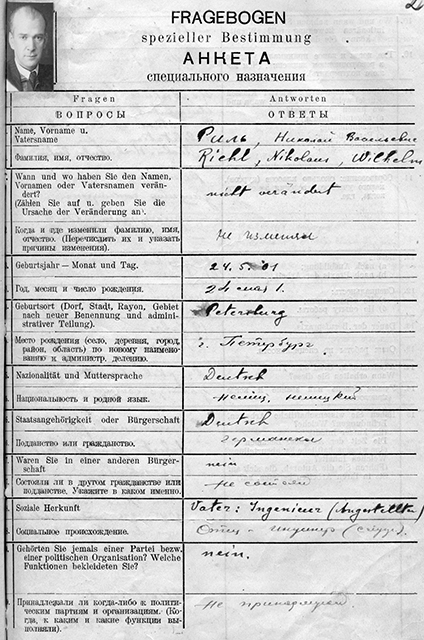 FRAGEBOGEN
spezieller Bestimmung
АНКЕТА
специального назначения
Fragen
Antworten
ВОПРОСЫ
ОТВЕТЫ
Name, Vorname u.
Vatersname
Риль, Николай Васильевич
Фамилия, имя, отчество.
Riehl, Nikolaus, Wilhelm
Wann und wo haben Sie den Namen,
Vornamen oder Vatersnamen verän-
dert?
(Zählen Sie auf u. geben Sie die
Ursache der Veränderung an.
nicht verändert
Когда и где изменили фамилию, имя,
отчество. (Перечислить их и указать
причины изменения).
не изменял
Geburtsjahr — Monat und Tag.
24. 5. 01
Год, месяц и число рождения.
24 мая 1.
Geburtsort (Dorf, Stadt, Rayon, Gebiet
nach neuer Benennung und admini-
strativer Teilung).
Petersburg
Место рождения (село, деревня, город,
район, область) по новому наимено-
ванию и администр. делению.
г. Петербург.
Nazionalität und Muttersprache
Deutsch
Национальность и родной язык.
немец, немецкий
Staatsangehörigkeit oder Bürgerschaft
Deutsch
Подданство или гражданство.
Waren Sie in einer anderen Bürger-
schaft
nein
Состояли ли в другом гражданстве или
подданстве. Укажите в каком именно.
не состоял
Soziale Herkunft
Vater: Ingenieur (Angestellter)
Социальное происхождение.
Отец - инженер
Gehörten Sie jemals einer Partei bezw.
einer politischen Organisation? Welche
Funktionen bekleideten Sie?
nein.
Принадлежали ли когда-либо к полити-
ческим партиям и организациям. (Ко-
гда, к каким и какие функции вы-
полняли).
не принадлежал